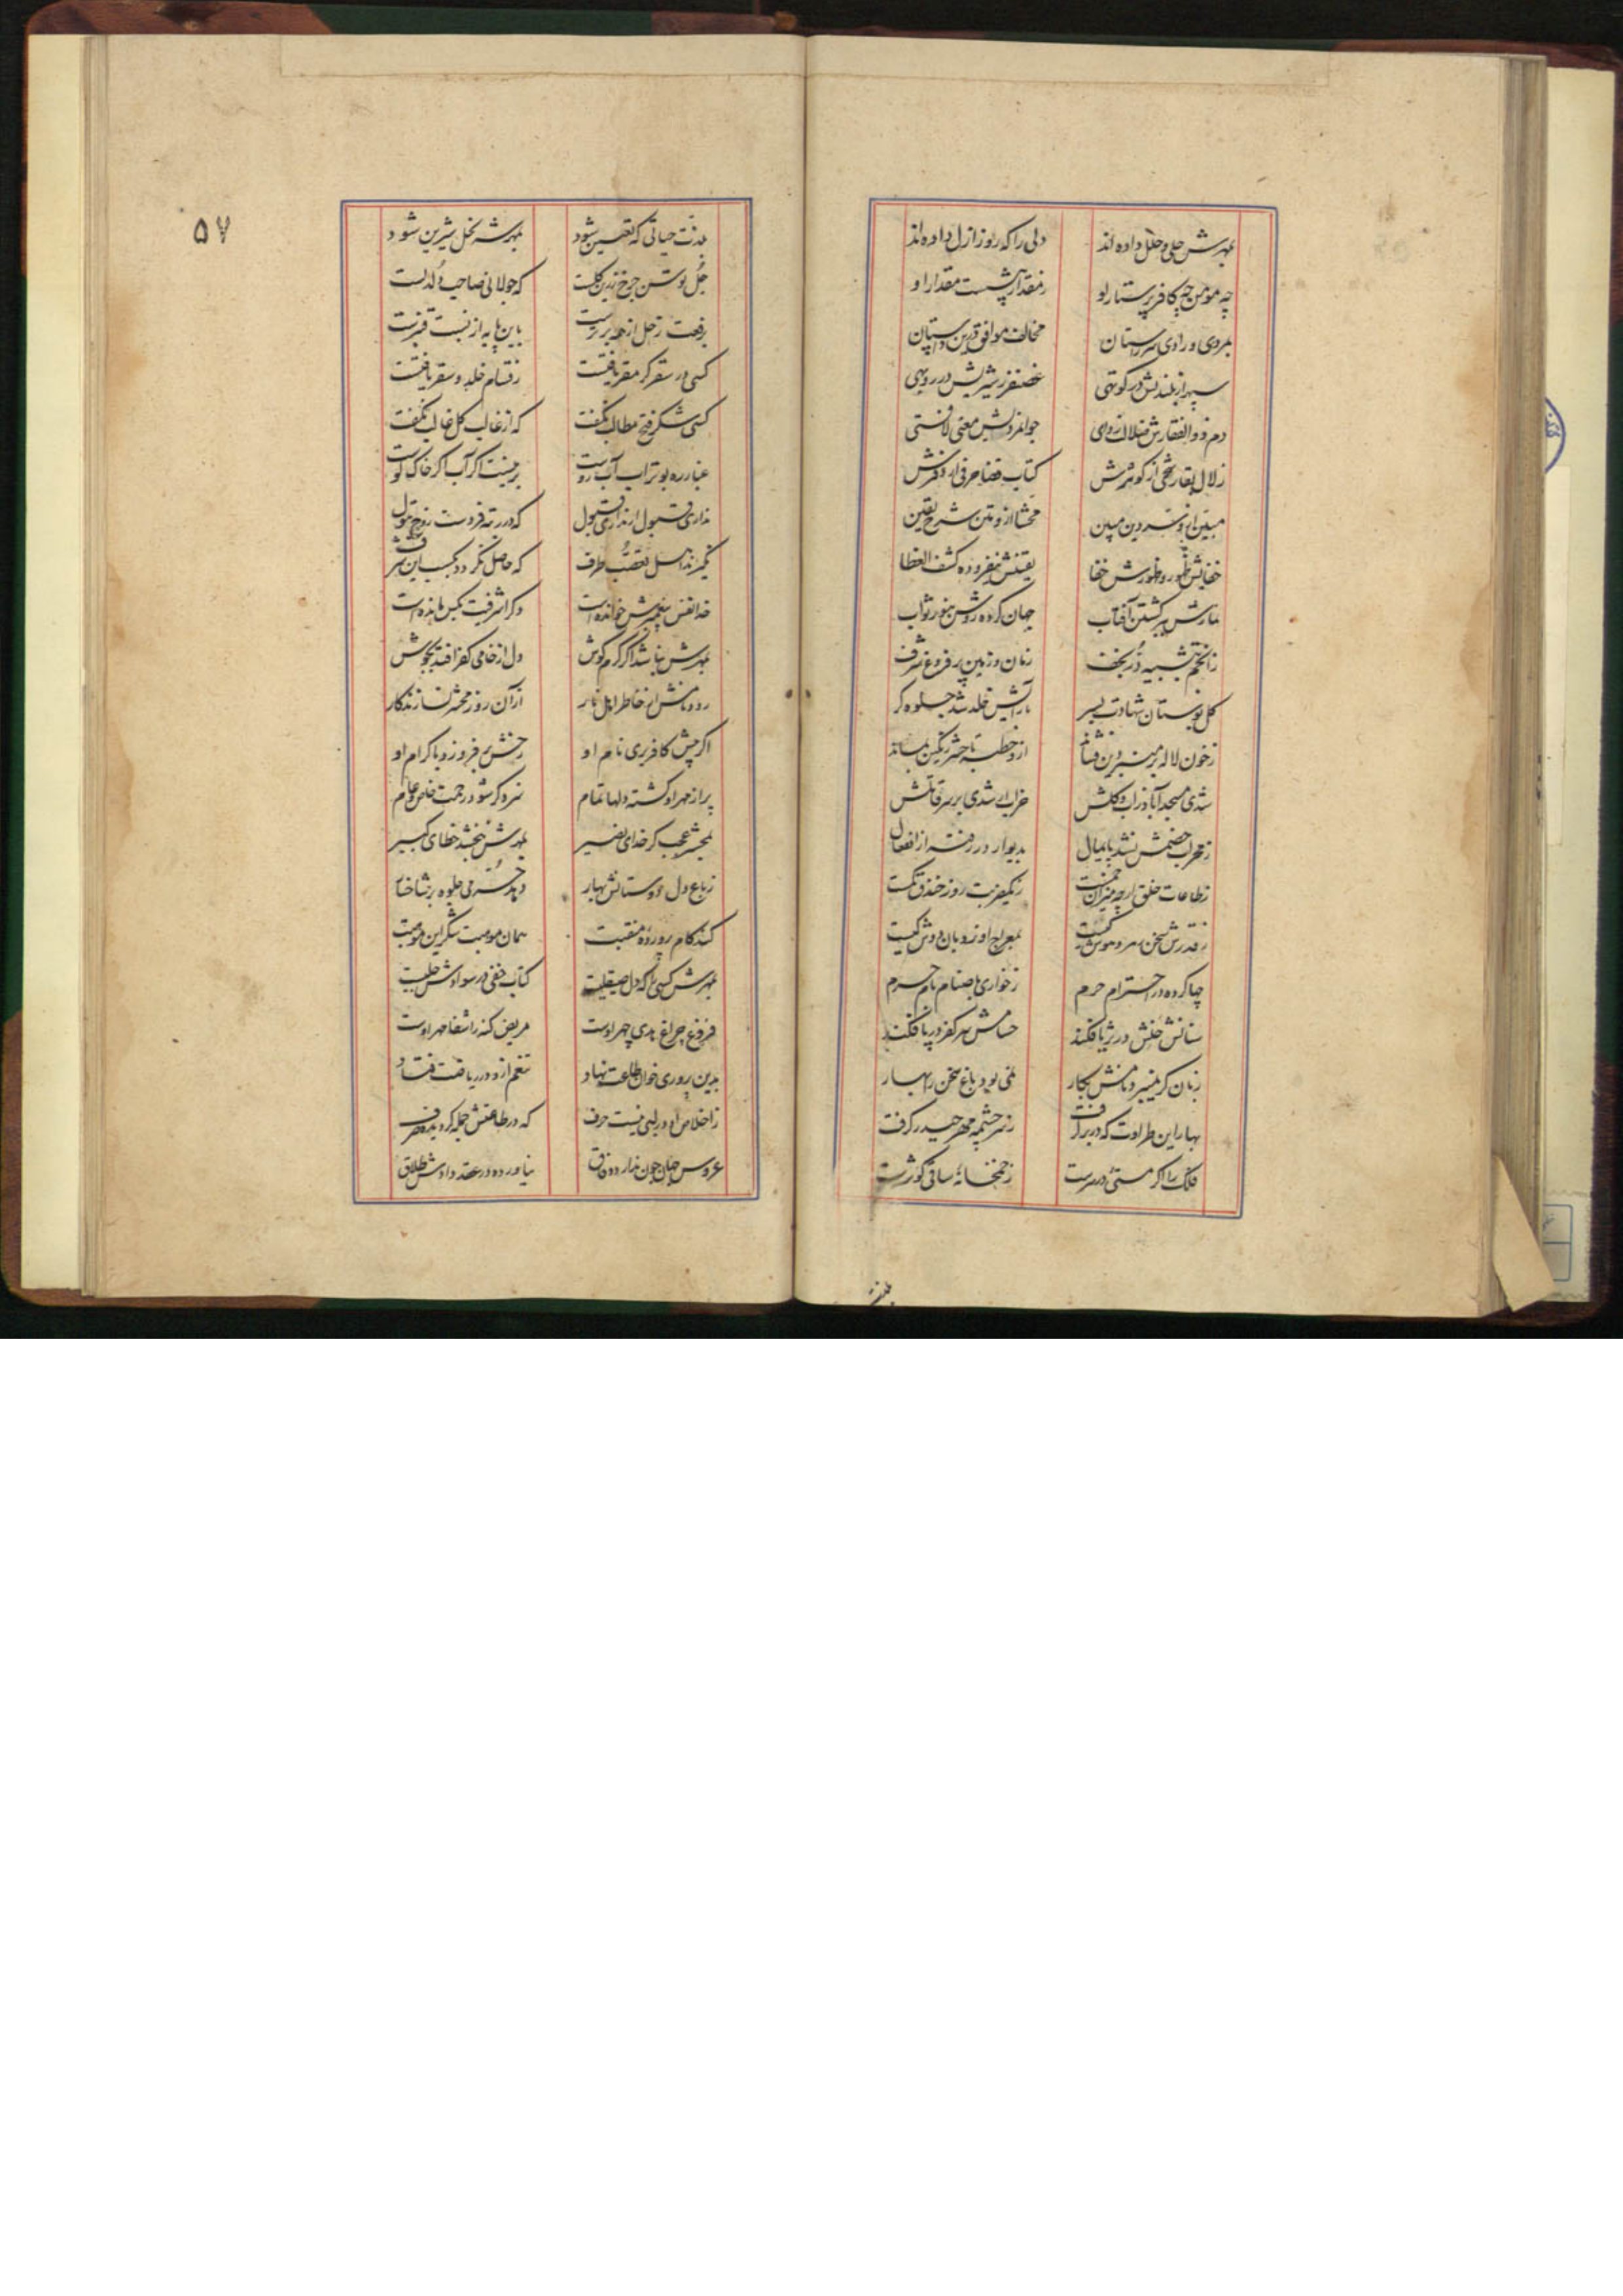 بمهرش حلی و حلل داده‌اند دلی را که روز ازل داده‌اند
چه مومن چه کافر پرستار او ز مقدار بیشست مقدار او
بمردی و رادی سر راستان مخالف موافق درین داستان
سپهر از بلندیش در کوتهی غضنفر ز شیریش در روبهی
دم ذوالفقارش جوانمردیش معنی لافتی
زلال بقا رشحی از کوثرش کتاب قضا حرفی از دفترش
مبین ازو شرع و دین مبین محشا ازو متن شرح یقین
خفایش ظهور و ظهورش خفا یقینش نیفزوده کشف الغطا
نمازش بپر کشتن آفتاب جهان کرده روشن بنور ثواب
ز انجم بتشبیه در نجف زمان و زمین پر فروغ شرف
گل بوستان شهادت بسر بآرایش خلد شد جلوه‌گر
ز خون لاله بر منبر دین فشاند ازو خطبه تا حشر رنگین بماند
شدی مسجد آباد از آب و گلش خرابی شدی بر سر قاتلش
ز محراب خصمش نشد پایمال بدیوار در رفته از انفعال
ز طاعات خلق ارچه میزان پرست ز یکضربت روز خندق
ز قدرش سخن بمعراج او نردبان دوش کیست
چها کرده در احترام حرم ز خواری باصنام نامحرم
سنانش خلش در ثریا فکند حسامش سر کفر در پا فکند
زبان گر نمیبرد نامش بکار نمی‌بود باغ سخن را بهار
بهار این طراوت که در برگرفت ز سرچشمه مهر حیدر گرفت
فلک را اگر مستی در سرست ز خمخانه ساقی کوثرست
۵۷
بدنت حیاتی که تعیین شود بمهرش نخل شیرین شود
جل توسن چرخ زرین گلست که جولانی صاحب دلدلست
برفعت زحل از همه برترست باین پایه از نسبت قنبرست
کسی در سقر گر مقر یافتست ز قسام خلد و سقر یافتست
کسی شکر فتح مطالب نگفت که از غالب کل غالب نگفت
غبار ره بوتراب آب روست برچیست اگر آب اگر خاک اوست
نداری قبول ار نداری قبول که در رتبه فردست زوج بتول
نگیرند اهل تعصب طرف که حاصل نگردد بکسب این شرف
خدا نفس پیغمبرش خوانده است دگر اشرفیت بکس مانده است
بمهرش نباشد اگر گرم کوش دل از خامی کفر افتد بجوش
رود نامش از خاطر اهل نار از آن روز محشر نسازند کار
اگر پیش کافر بری نام او رخش برفروزد باکرام او
پر از مهر او گشته دلها تمام سزد گر شود رحمت خاص عام
بمحشر عجب گر خدای نصیر بمهرش نبخشد خطای کبیر
ز باغ دل دوستانش بهار دهد
کند کام پرورده منقبت همان موهبت شکر این موهبت
بمهرش کسی را که دل صیقلیست کتاب خفی در سوادش جلیست
فروغ چراغ هدی چهر اوست مریض گنه را شفا مهر اوست
بدین پروری خوان طاعت نهاد تنعم ازو در ریاضت فتاد
ز اخلاص او در لبی نیست حرف که در طاعتش جمله گردیده صرف
عروس جهان چون ندارد وفاق نیاورده در عقد دادش طلاق